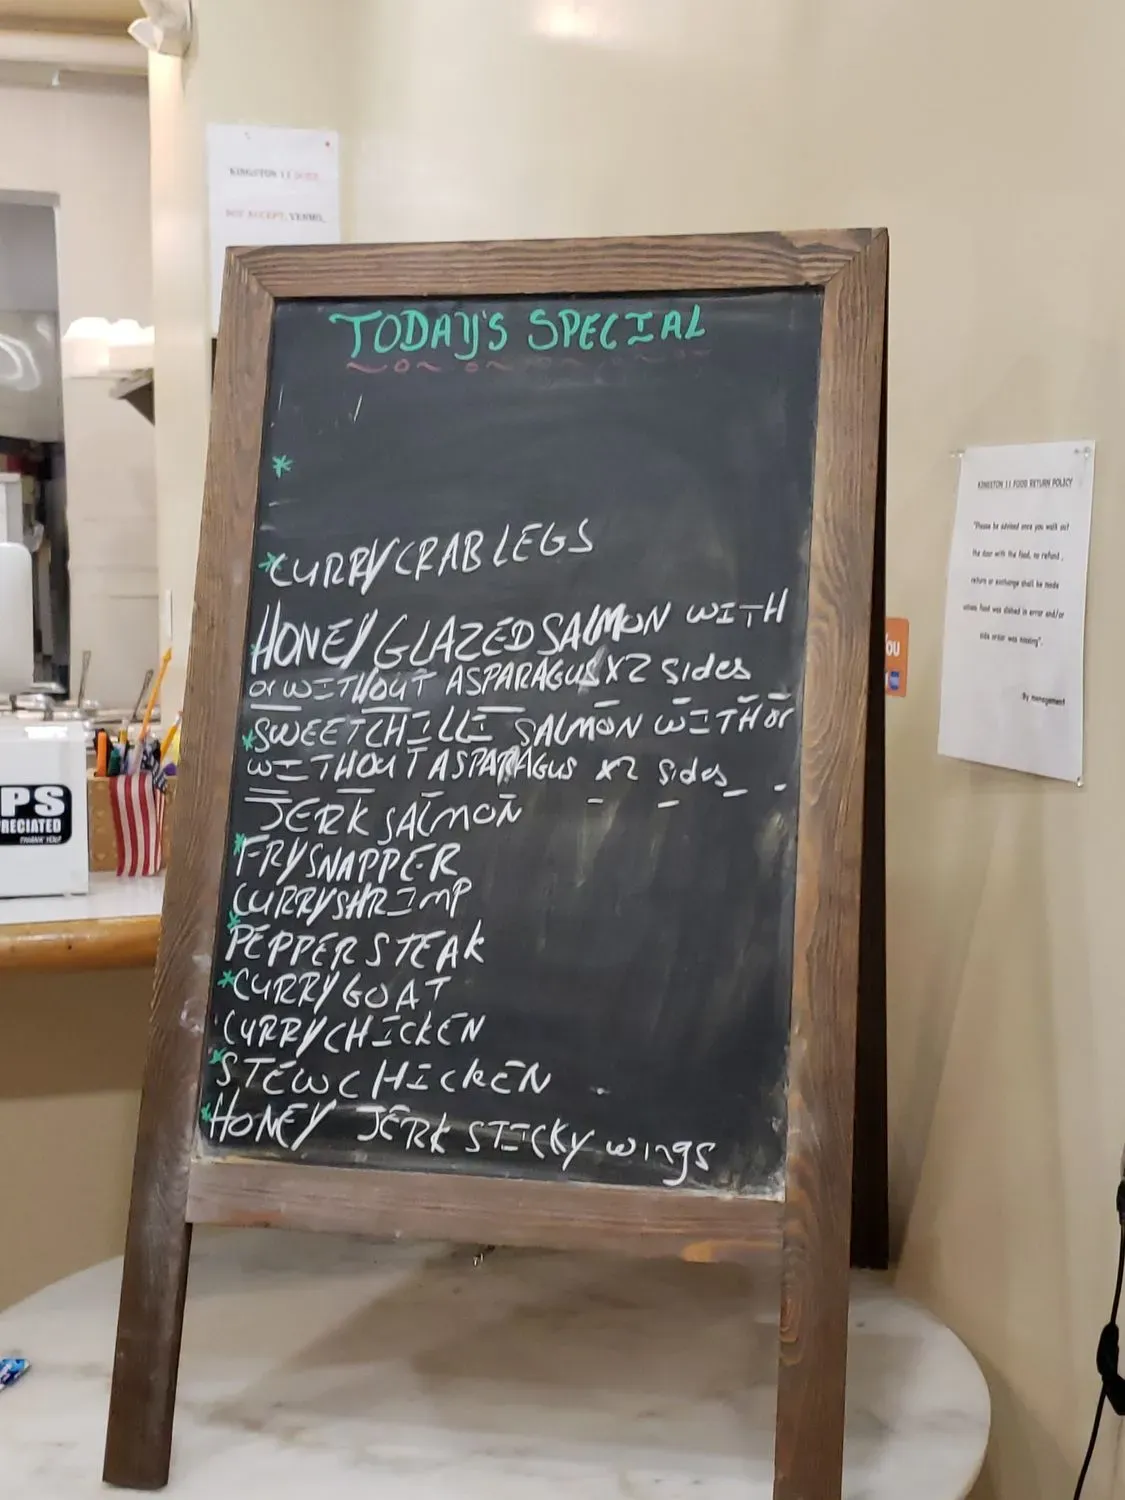 KINGSTON 11 DOES
NOT ACCEPT VENMO.
TODAY'S SPECIAL
*
*CURRY CRAB LEGS
HONEY GLAZED SALMON WITH
or WITHOUT ASPARAGUS X2 sides
*SWEET CHILLI SALMON WITH or
WITHOUT ASPARAGUS X2 sides
JERK SALMON
*FRY SNAPPER
CURRY SHRIMP
*PEPPER STEAK
*CURRY GOAT
CURRY CHICKEN
*STEW CHICKEN
*HONEY JERK STICKY wings
KINGSTON 11 FOOD RETURN POLICY
"Please be advised once you walk out
the door with the food, no refund,
return or exchange shall be made
unless food was dished in error and/or
side order was missing".
By management
YOU
PS
RECIATED
THANK YOU!